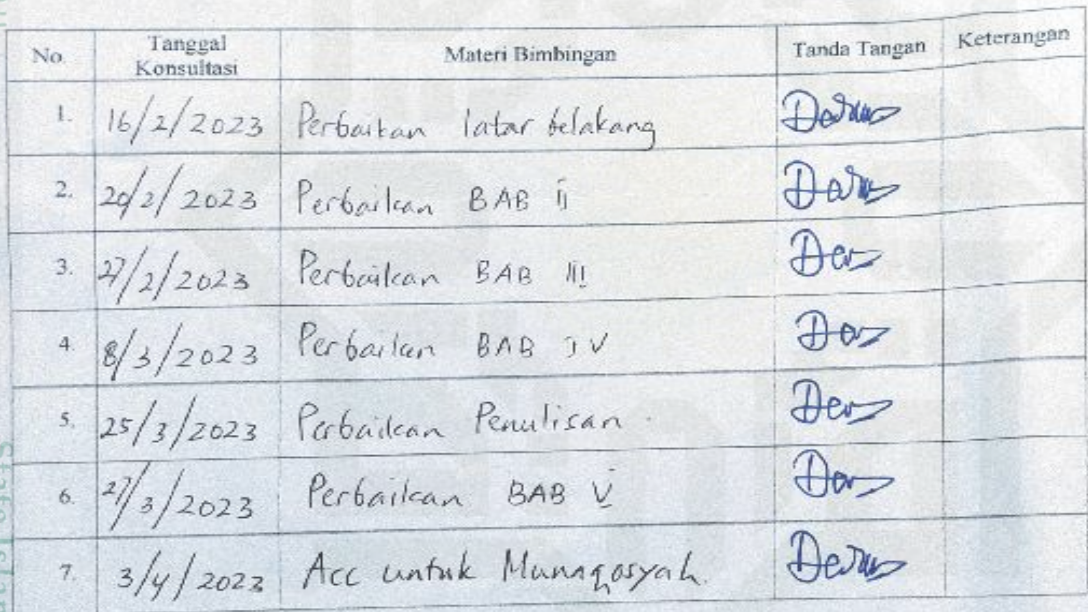 No. Tanggal Konsultasi Materi Bimbingan Tanda Tangan Keterangan
1. 16/2/2023 Perbaikan latar belakang
2. 20/2/2023 Perbaikan BAB II
3. 27/2/2023 Perbaikan BAB III
4. 8/3/2023 Perbaikan BAB IV
5. 25/3/2023 Perbaikan Penulisan
6. 27/3/2023 Perbaikan BAB V
7. 3/4/2023 Acc untuk Munaqosyah